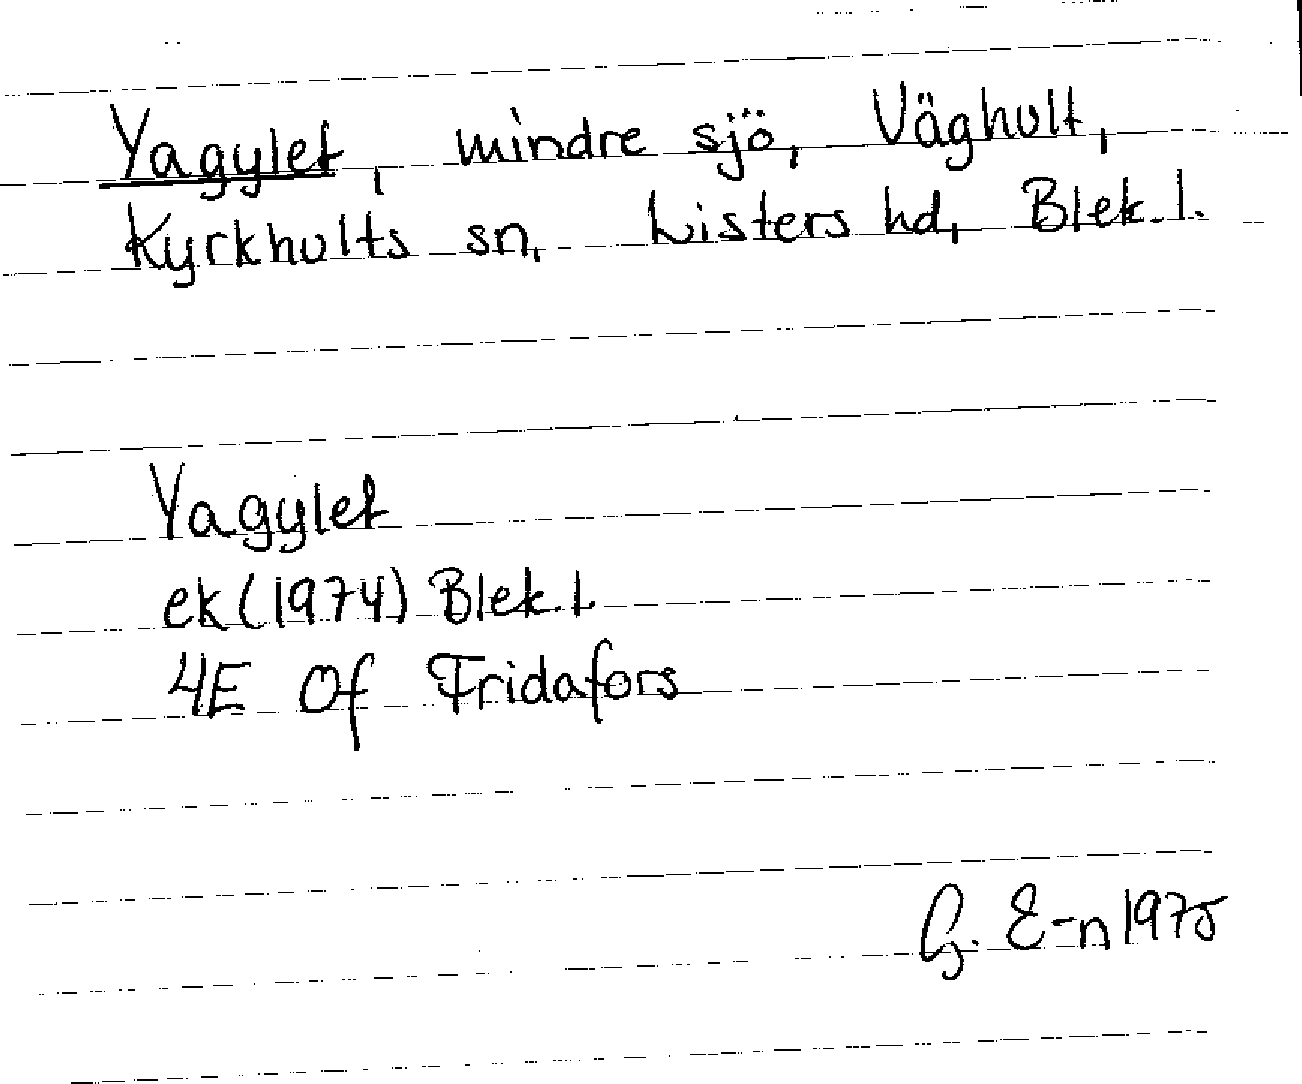 Yagylet, mindre sjö, Väghult,
Kyrkhults sn, Listers hd, Blek. l.
Yagylet
ek (1974) Blek. l
4E Of Fridafors
G. E-n 1975